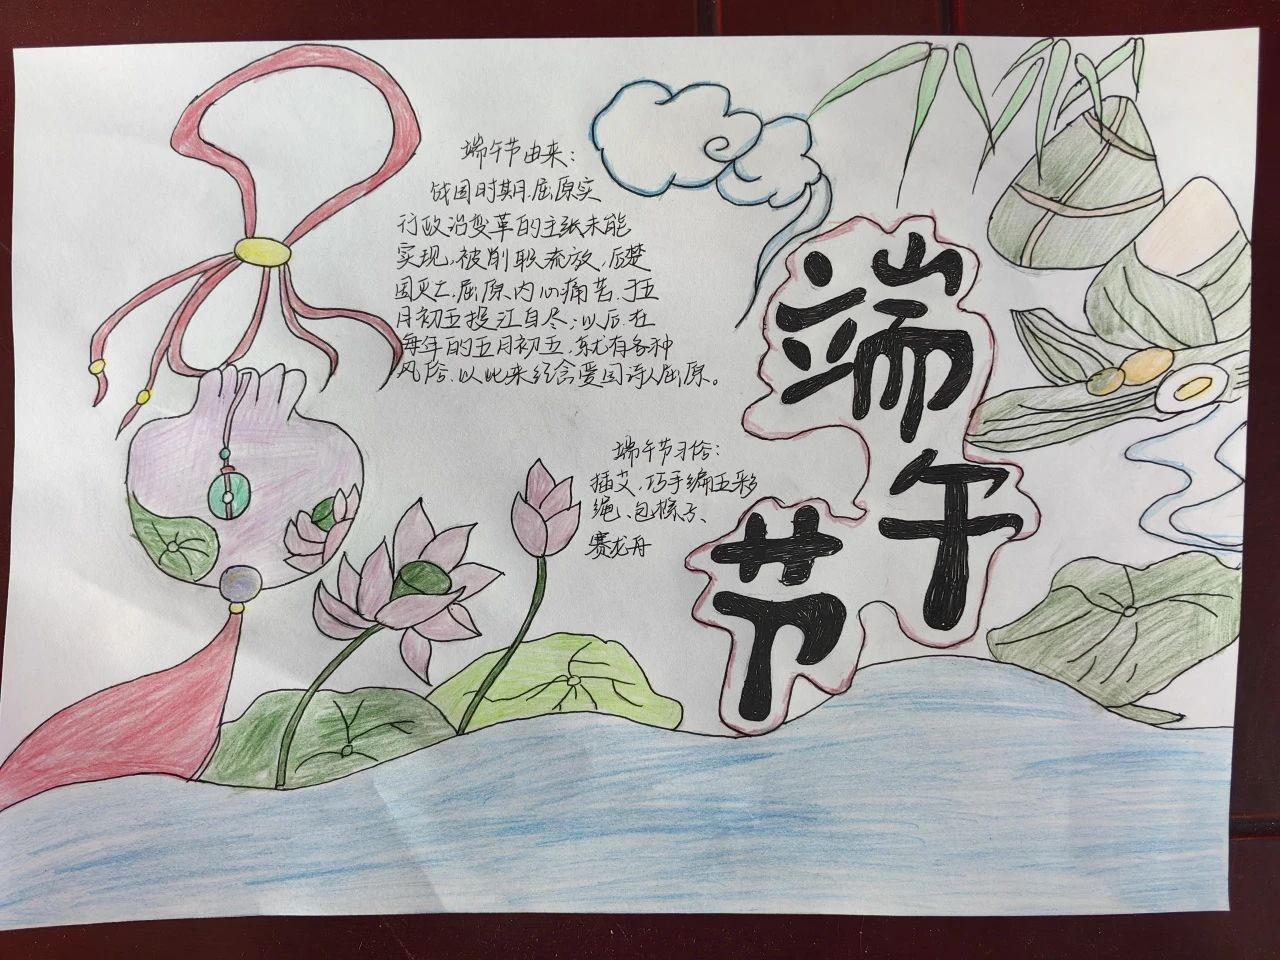 端午节
端午节由来：
战国时期，屈原实
行政治变革的主张未能
实现，被削职流放，后楚
国灭亡，屈原内心痛苦，于五
月初五投江自尽；以后在
每年的五月初五，就有各种
风俗，以此来纪念爱国诗人屈原。
端午节习俗：
插艾，巧手编五彩
绳、包粽子、
赛龙舟